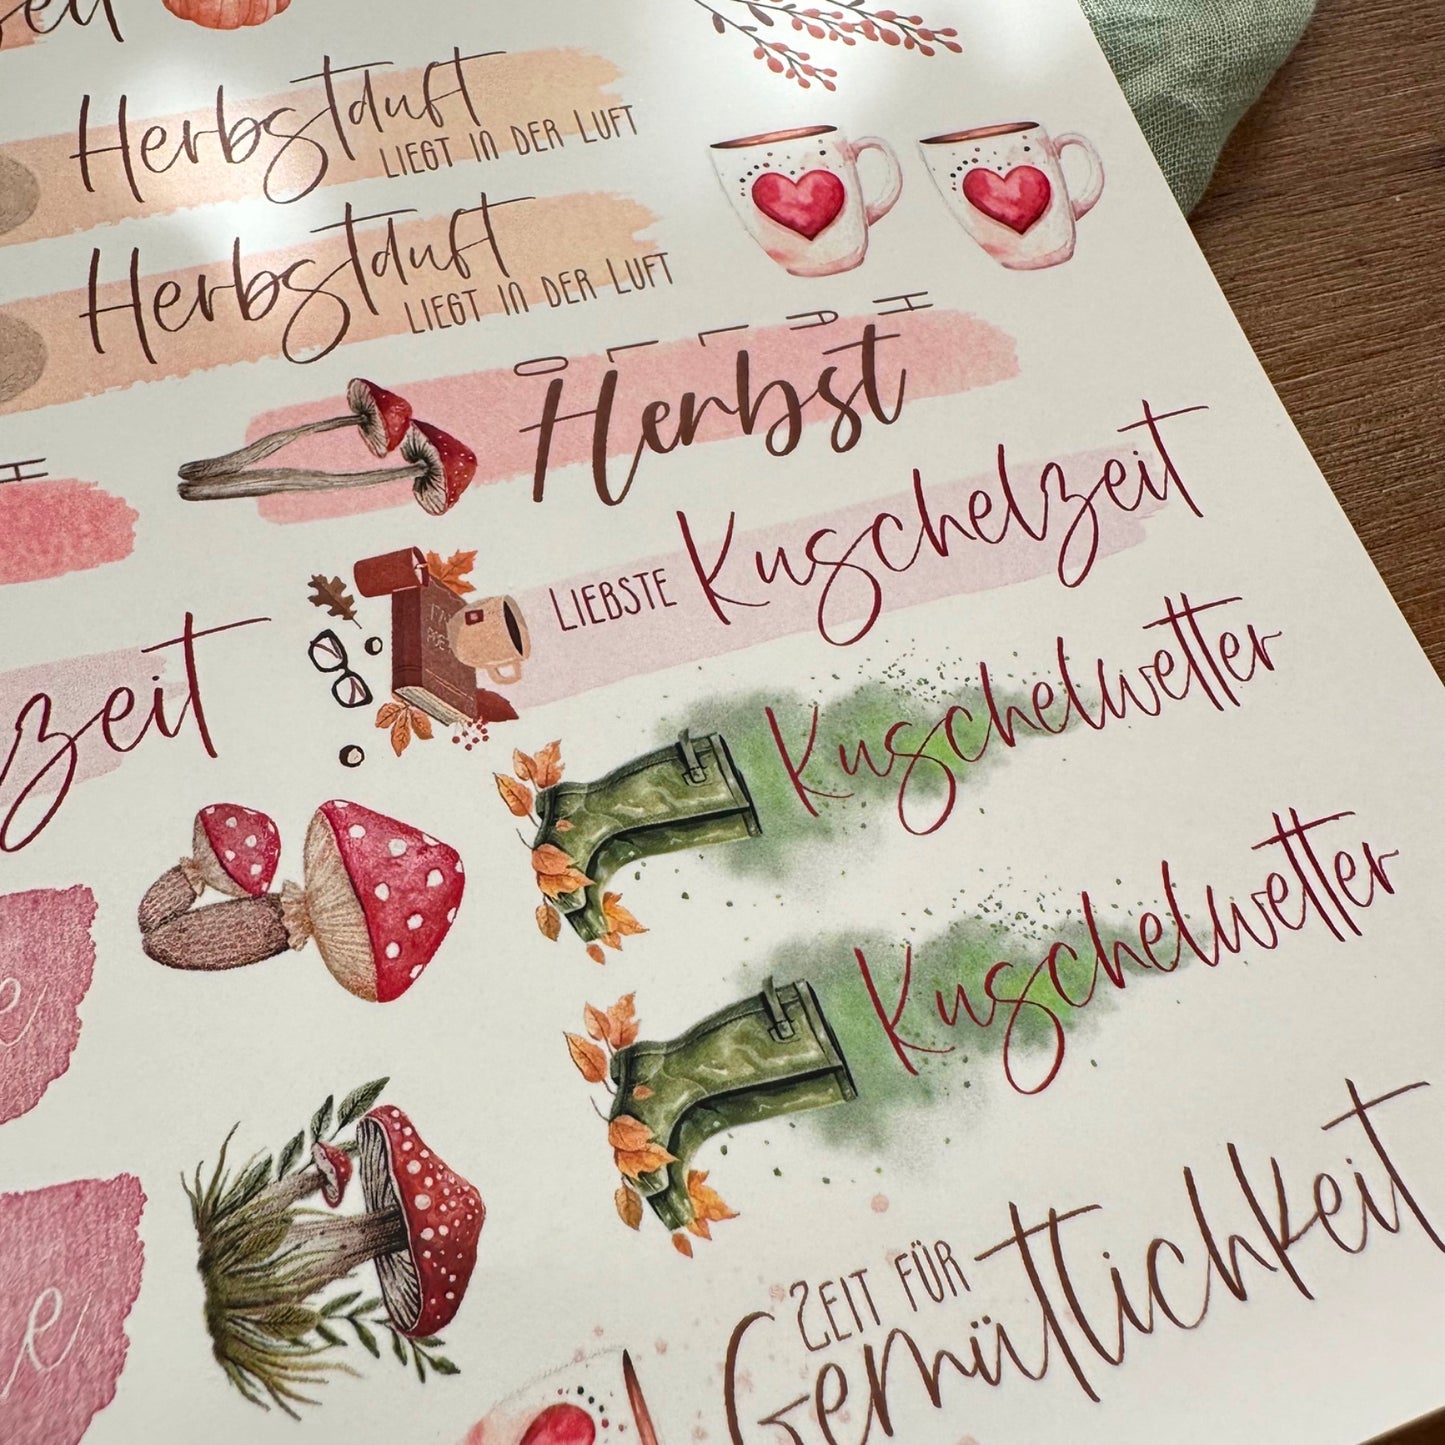 Herbstduft
LIEGT IN DER LUFT
Herbstduft
LIEGT IN DER LUFT
HALLO
Herbst
LIEBSTE Kuschelzeit
zeit
Kuschelwetter
Kuschelwetter
ZEIT FÜR
Gemütlichkeit